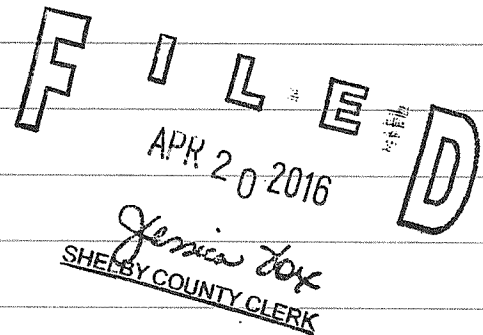 FILED
APR 20 2016
Jessica Fox
SHELBY COUNTY CLERK